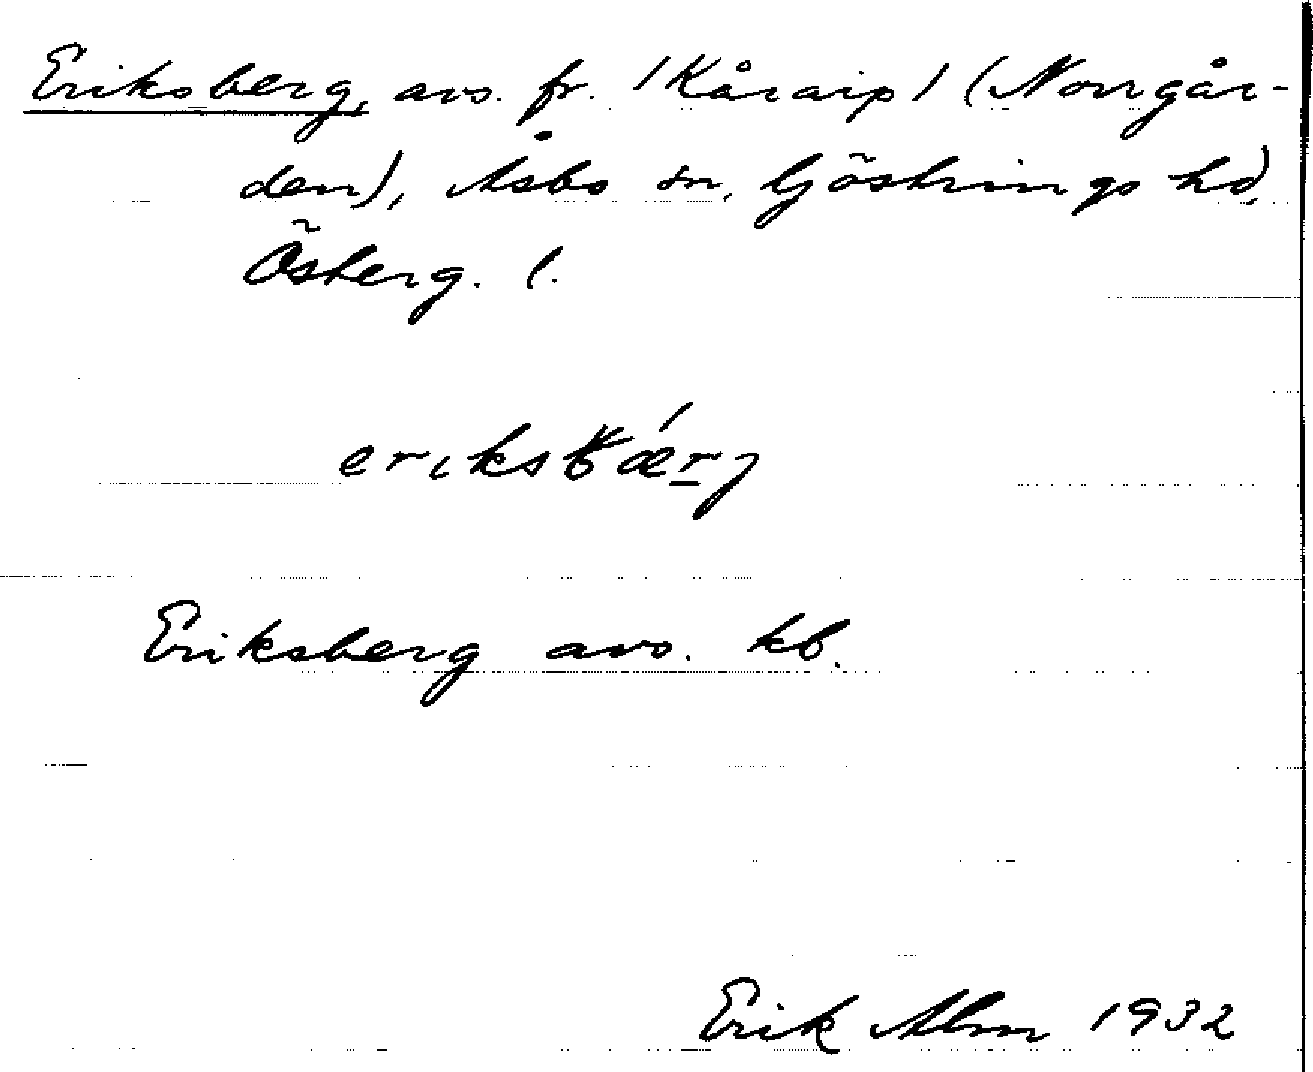 Eriksberg, avs. fr. /Kårarp/ (Norrgår-
den), Åsbo sn, Göstrings hd,
Österg. l.
eriksbǽrj
Eriksberg avs. kb.
Erik Alm 1932